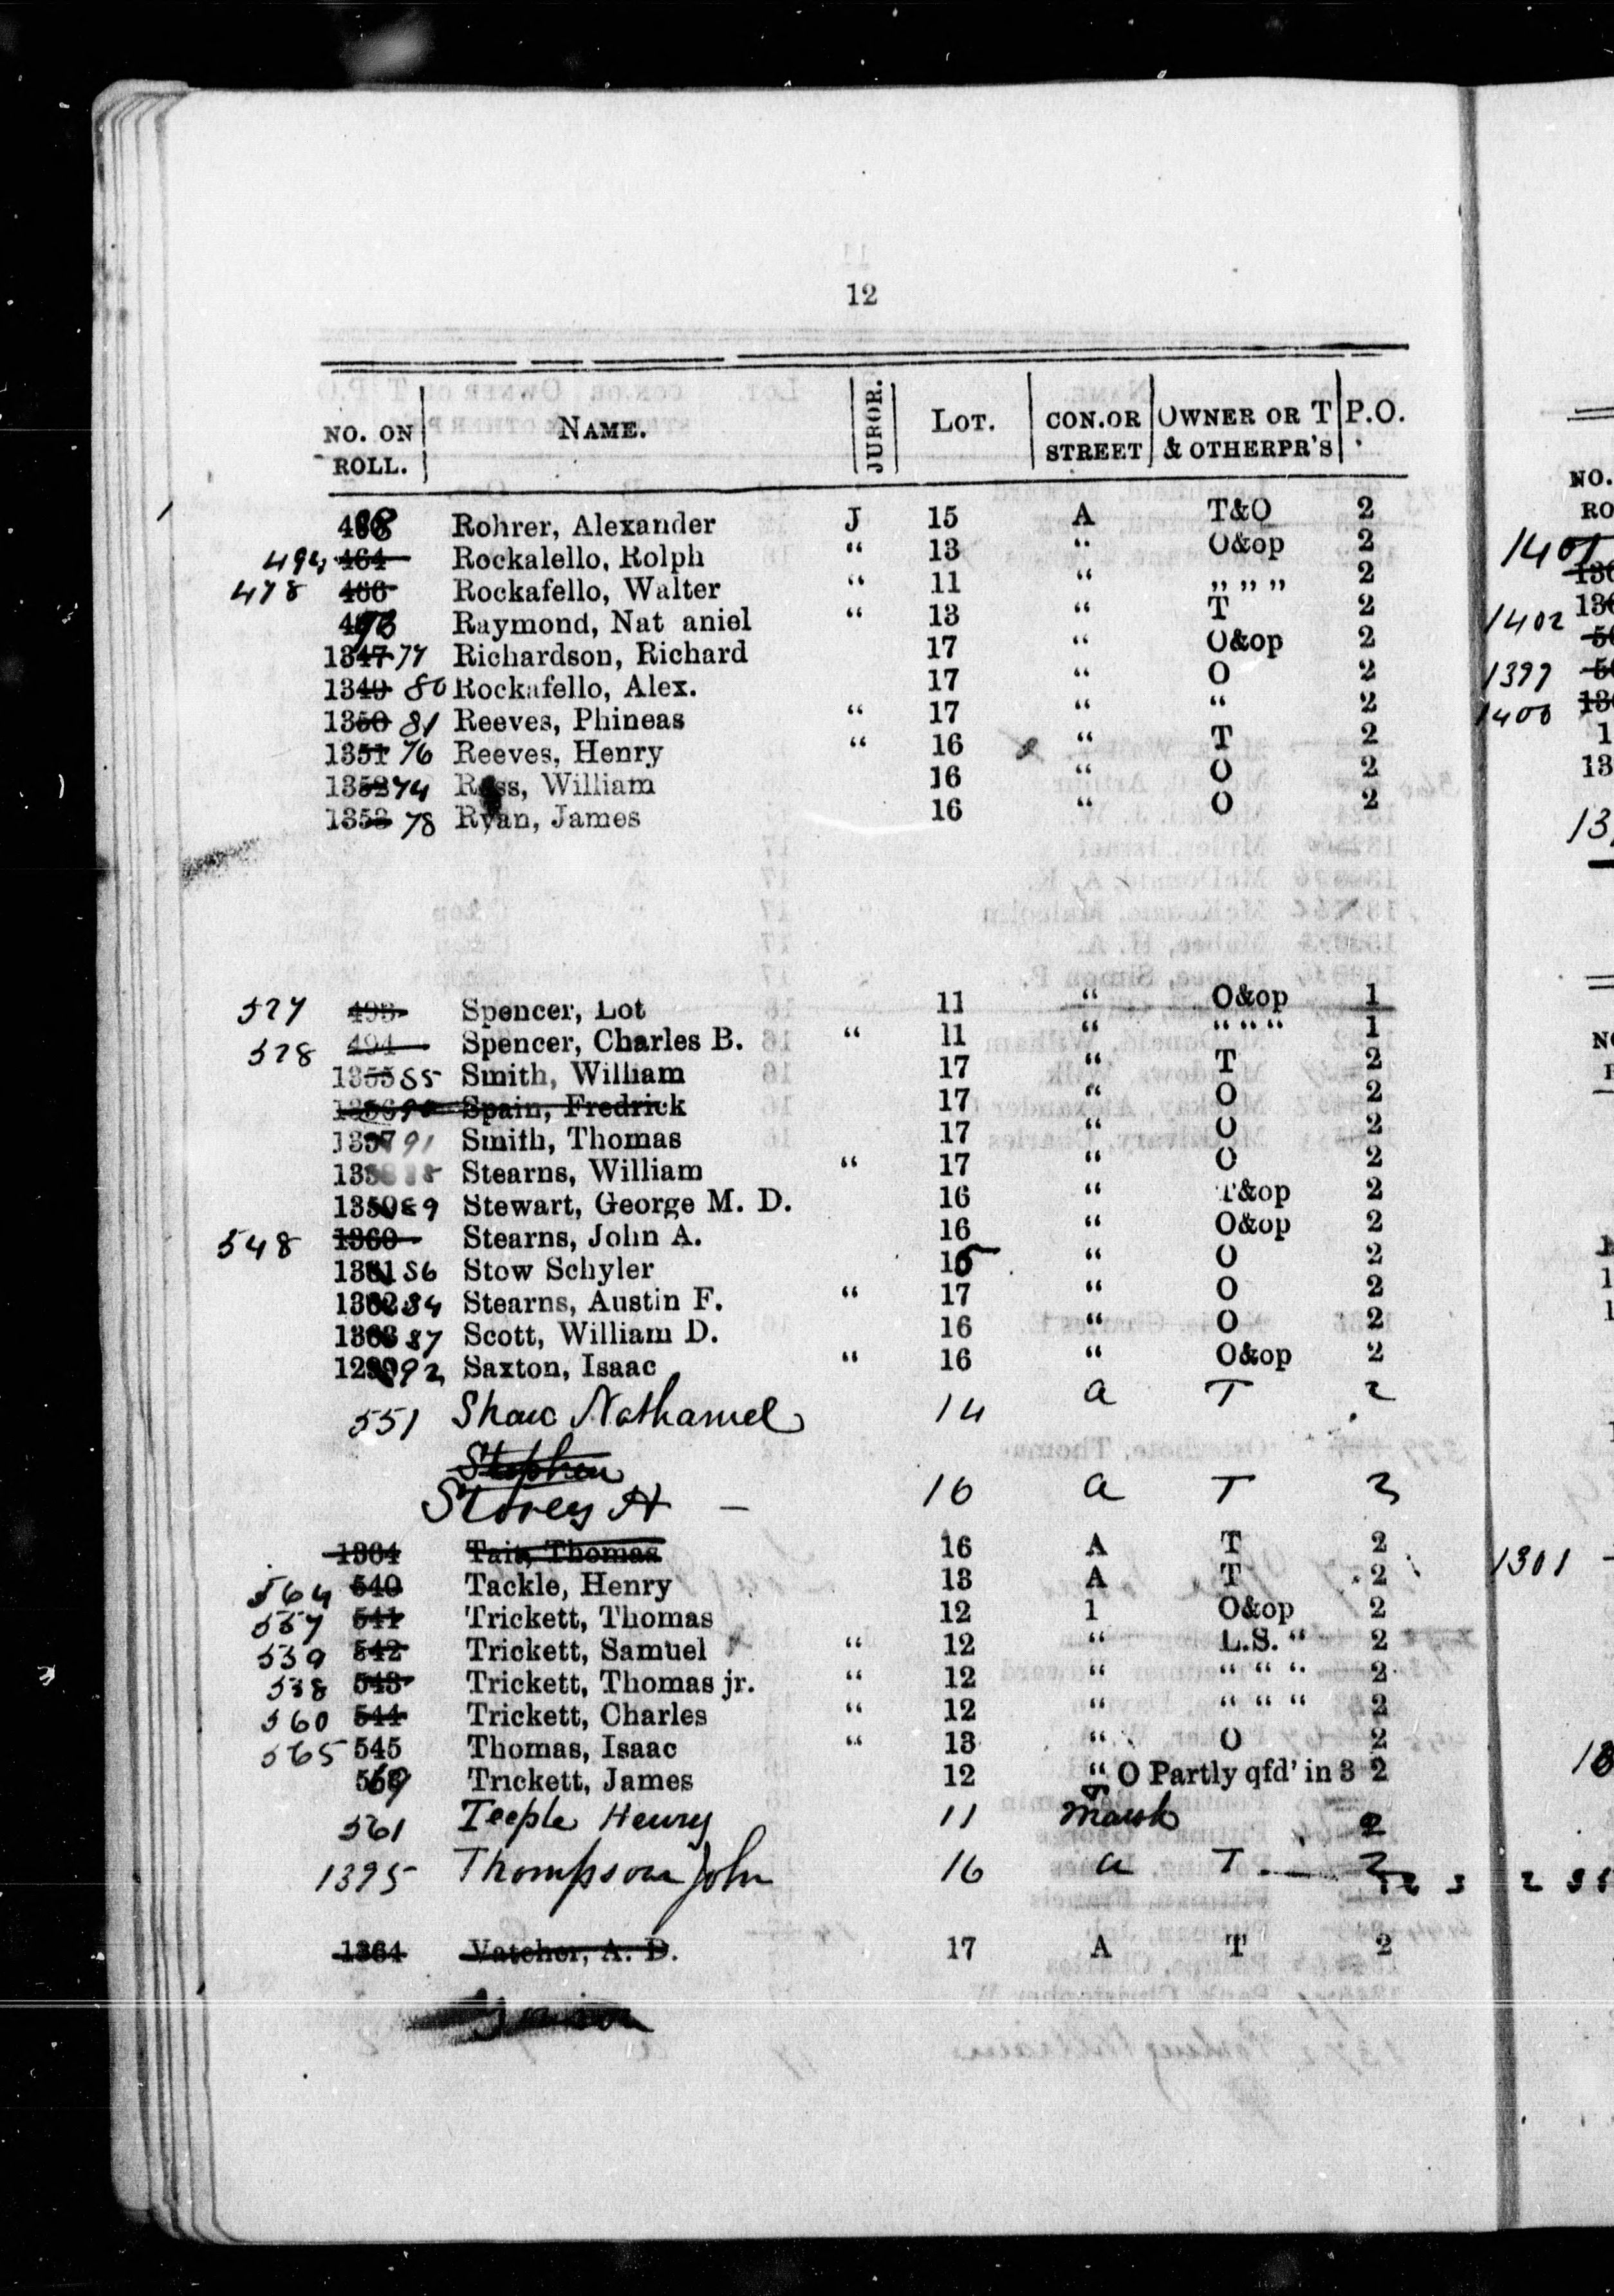 12
NO. ON ROLL. NAME. JUROR. LOT. CON. OR STREET OWNER OR T & OTHERPR'S P.O.
Rohrer, Alexander J 15 A T&O 2
494 464 Rockalello, Rolph “ 13 “ O&op 2
478 466 Rockafello, Walter “ 11 “ „ „ „ 2
Raymond, Nat aniel “ 13 “ T 2
1347 77 Richardson, Richard 17 “ O&op 2
1349 80 Rockafello, Alex. 17 “ O 2
1350 81 Reeves, Phineas “ 17 “ “ 2
1351 76 Reeves, Henry “ 16 “ T 2
1352 74 Ross, William 16 “ O 2
1353 78 Ryan, James 16 “ O 2
527 493 Spencer, Lot 11 “ O&op 1
528 494 Spencer, Charles B. “ 11 “ “ “ “ 1
1355 85 Smith, William 17 “ T 2
1356 90 Spain, Fredrick 17 “ O 2
1357 91 Smith, Thomas 17 “ O 2
1358 88 Stearns, William “ 17 “ O 2
1359 89 Stewart, George M. D. 16 “ T&op 2
548 1360 Stearns, John A. 16 “ O&op 2
1361 86 Stow Schyler 15 “ O 2
1362 84 Stearns, Austin F. “ 17 “ O 2
1363 87 Scott, William D. 16 “ O 2
92 Saxton, Isaac “ 16 “ O&op 2
551 Shaw Nathaniel 14 a T 2
Stephen
Storey H – 16 a T 2
1364 Tait, Thomas 16 A T 2
564 540 Tackle, Henry 13 A T 2
557 541 Trickett, Thomas 12 1 O&op 2
559 542 Trickett, Samuel “ 12 “ L.S. “ 2
558 543 Trickett, Thomas jr. “ 12 “ “ “ “ 2
560 544 Trickett, Charles “ 12 “ “ “ “ 2
565 545 Thomas, Isaac “ 13 “ O 2
Trickett, James 12 “ O Partly qfd' in 3 2
561 Teeple Henry 11 Marsh 2
1395 Thompson John 16 a T 2
1364 Vatcher, A. D. 17 A T 2
NO.
RO
1401
1402
1397
1400
13
1301